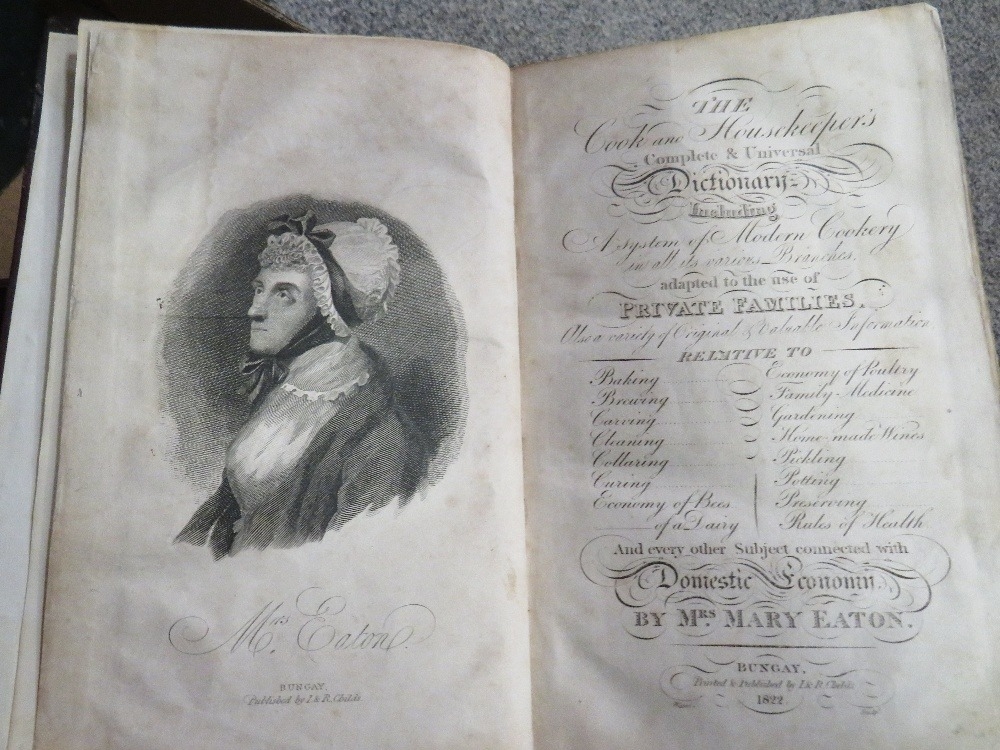 Mrs Eaton.
BUNGAY,
Published by I. & R. Childs
THE
Cook and Housekeeper's
Complete & Universal
Dictionary
Including
A system of Modern Cookery
in all its various Branches,
adapted to the use of
PRIVATE FAMILIES.
Also a variety of Original & Valuable Information
RELATIVE TO
Baking
Brewing
Carving
Cleaning
Collaring
Curing
Economy of Bees
of a Dairy
Economy of Poultry
Family Medicine
Gardening
Home-made Wines
Pickling
Potting
Preserving
Rules of Health
And every other Subject connected with
Domestic Economy.
BY MRS MARY EATON.
BUNGAY,
Printed & Published by I. & R. Childs
1822.